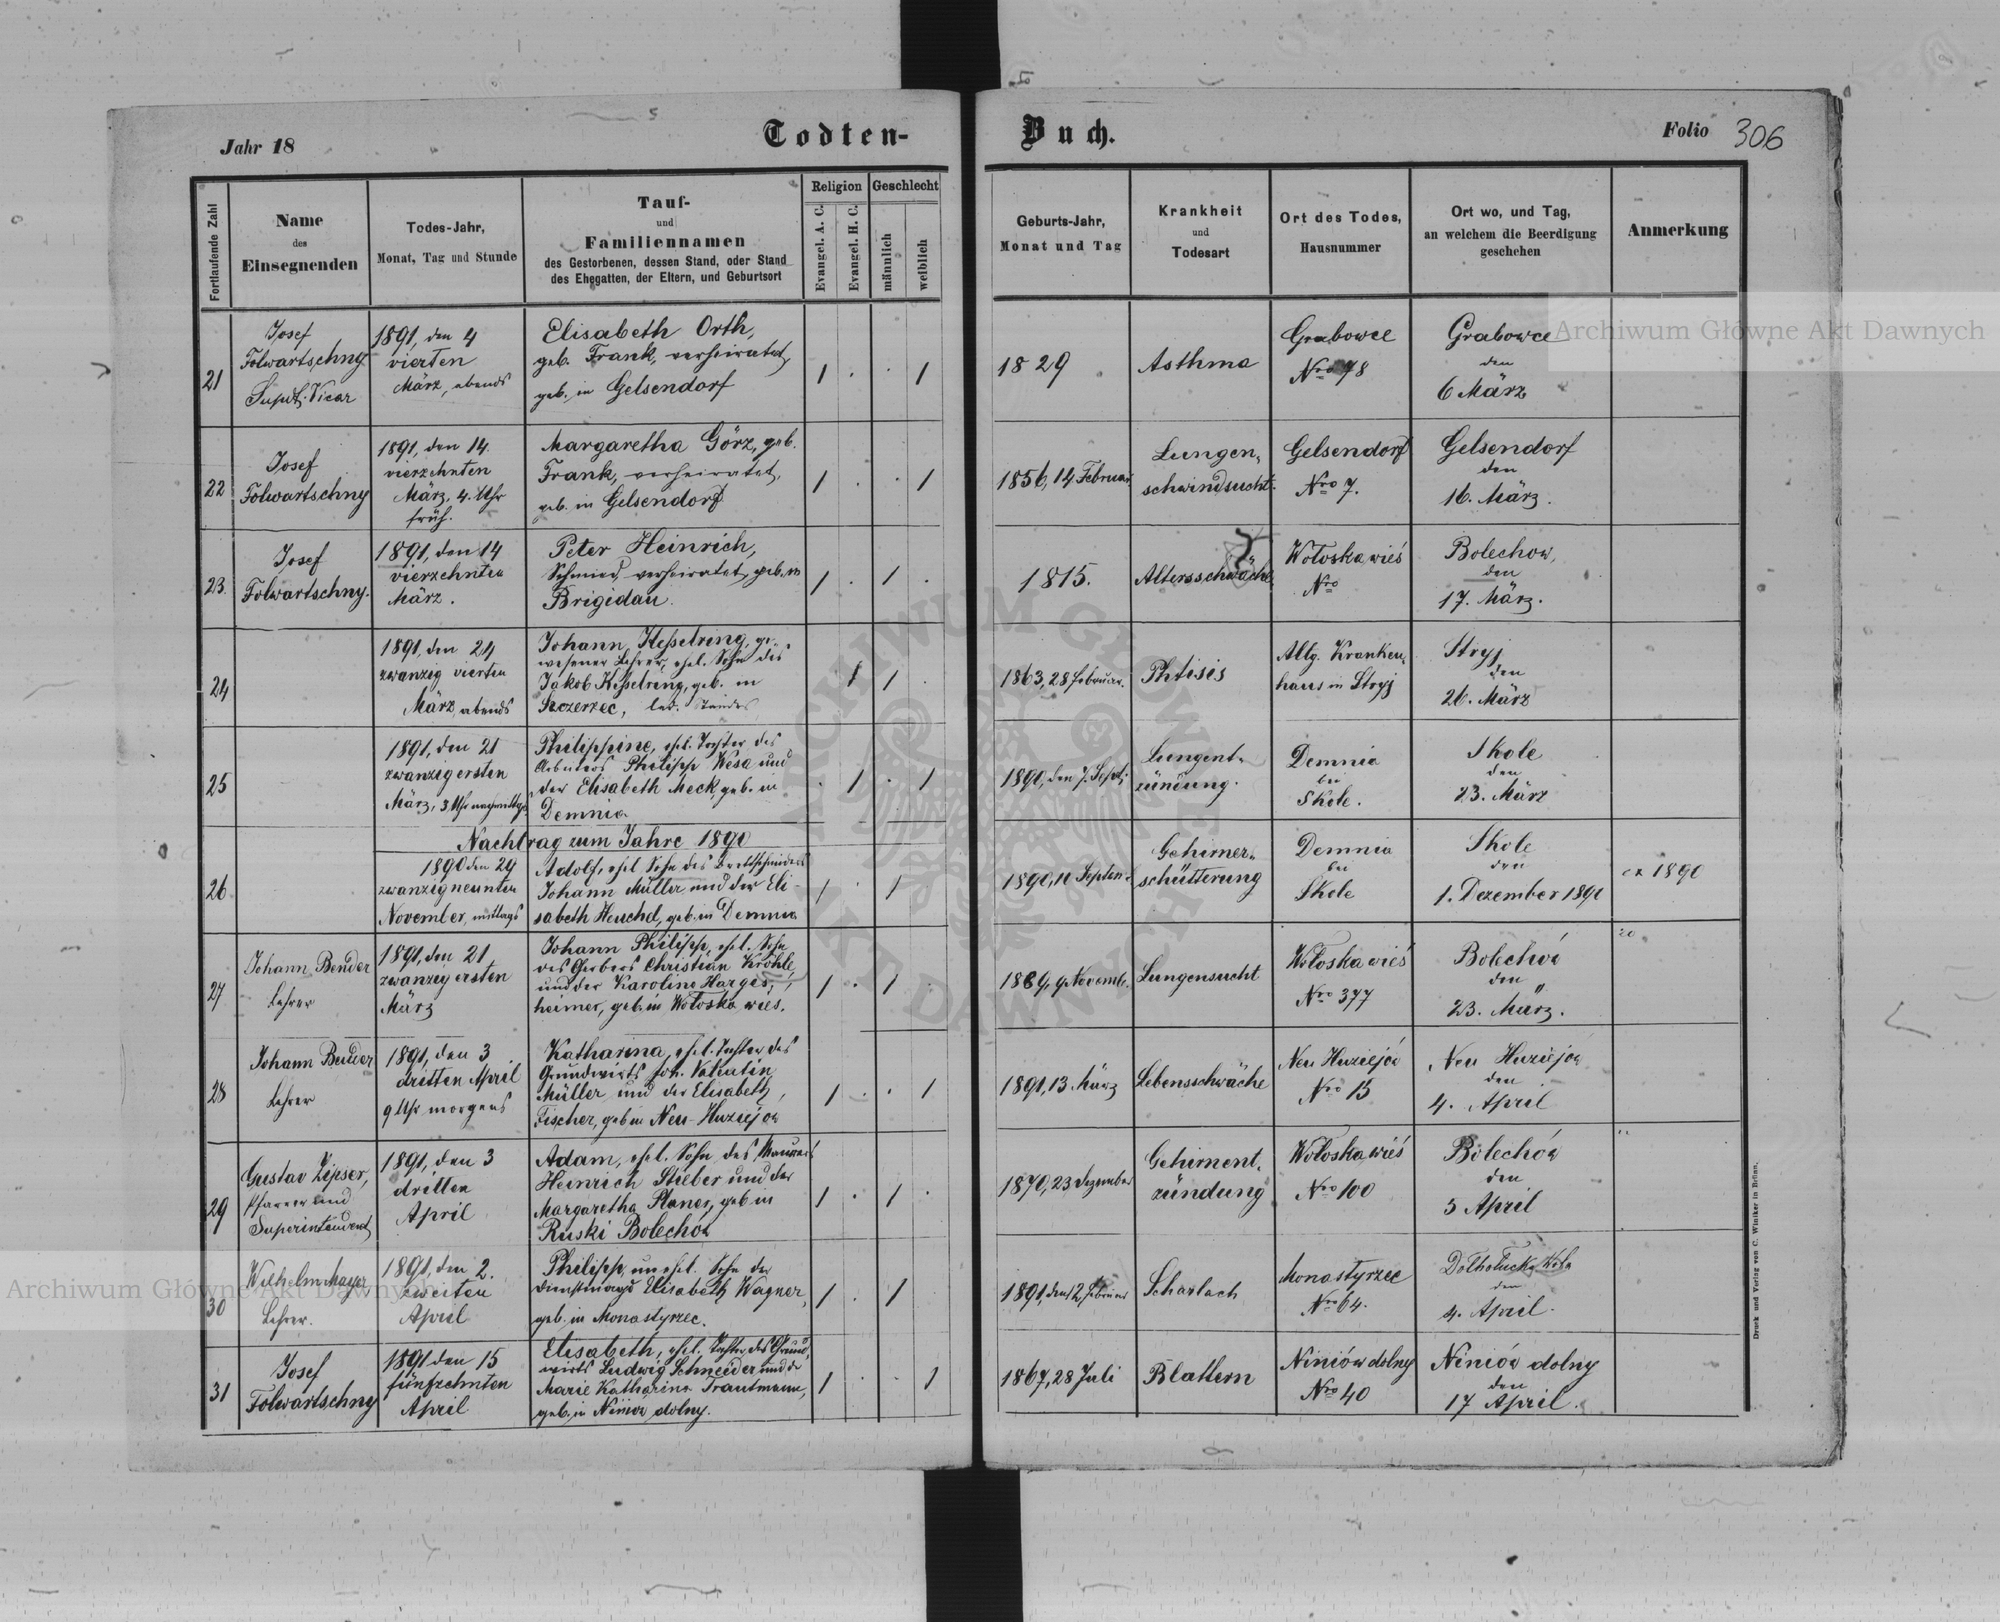 Jahr 18
Todten-
Buch.
Folio 306
Fortlaufende Zahl
Name
des
Einsegnenden
Todes-Jahr,
Monat, Tag und Stunde
Tauf-
und
Familiennamen
des Gestorbenen, dessen Stand, oder Stand
des Ehegatten, der Eltern, und Geburtsort
Religion
Evangel. A. C.
Evangel. H. C.
Geschlecht
männlich
weiblich
Geburts-Jahr,
Monat und Tag
Krankheit
und
Todesart
Ort des Todes,
Hausnummer
Ort wo, und Tag,
an welchem die Beerdigung
geschehen
Anmerkung
21
Josef
Folwartschny
Supdt. Vicar
1891, den 4
vierten
März, abends
Elisabeth Orth,
geb. Frank, verheiratet,
geb. in Gelsendorf
1829
Asthma
Grabowce
Nro 78
Grabowce
den
6 März
22
Josef
Folwartschny
1891, den 14.
vierzehnten
März, 4. Uhr
früh.
Margaretha Görz, geb.
Frank, verheiratet,
geb. in Gelsendorf
1856, 14 Februar
Lungen-
schwindsucht.
Gelsendorf
Nro 7.
Gelsendorf
den
16. März.
23.
Josef
Folwartschny.
1891, den 14
vierzehnten
März.
Peter Heinrich,
Schmied, verheiratet, geb. in
Brigidau.
1815.
Altersschwäche
Wołoska wieś
Nro
Bolechow,
den
17. März.
24
1891, den 24
zwanzig vierten
März, abends
Johann Hesselring, ge-
wesener Lehrer, ehel. Sohn des
Jakob Hesselring, geb. in
Szczerzec, led. Standes
1863, 28 Februar.
Phtisis
Allg. Kranken-
haus in Stryj
Stryj
den
26. März
25
1891, den 21
zwanzig ersten
März, 3 Uhr nachmittgs
Philippine, ehel. Tochter des
Arbeiters Philipp Wesa und
der Elisabeth Meck, geb. in
Demnia
1890, den 7. Sept.
Lungent-
zündung.
Demnia
bei
Skole.
Skole
den
23. März
Nachtrag zum Jahre 1890
26
1890 den 29
zwanzig neunten
November, mittags
Adolf, ehel Sohn des Brettschneiders
Johann Müller und der Eli-
sabeth Heuchel, geb. in Demnia
1890, 11 Septem.
Gehirner-
schütterung
Demnia
bei
Skole
Skole
den
1. Dezember 1890
ex 1890
27
Johann Bender
Lehrer
1891, den 21
zwanzig ersten
März
Johann Philipp, ehel. Sohn
des Gerbers Christian Kröhle,
und der Karoline Harges-
heimer, geb. in Wołoska wieś.
1889, 9 Novemb.
Lungensucht
Wołoska wieś
Nro 377
Bolechów
den
23. März.
28
Johann Bender
Lehrer
1891, den 3
dritten April
9 Uhr morgens
Katharina, ehel. Tochter des
Grundwirts Joh. Valentin
Müller und der Elisabeth,
Fischer, geb in Neu-Huziejow
1891, 13 März
Lebensschwäche
Neu Huziejów
Nro 15
Neu Huziejów
den
4. April
29
Gustav Zipser,
Pfarrer und
Superintendent
1891, den 3
dritten
April
Adam, ehel. Sohn des Maurers
Heinrich Stieber und der
Margaretha Planer, geb in
Ruski Bolechów
1870, 23 Dezember
Gehirnent-
zündung
Wołoska wieś
Nro 100
Bolechów
den
5 April
30
Wilhelm Mayer
Lehrer.
1891, den 2.
zweiten
April
Philipp, unehel. Sohn der
Dienstmagd Elisabeth Wagner,
geb. in Monastyrzec.
1891, den 12 Februar
Scharlach
Monastyrzec
Nro 64.
den
4. April.
31
Josef
Folwartschny
1891 den 15
fünfzehnten
April
Elisabeth, ehel. Tochter des Grund-
wirts Ludwig Schneider und der
Marie Katharina Trautmann,
geb. in Niniów dolny.
1867, 28 Juli
Blattern
Niniów dolny
Nro 40
Niniów dolny
den
17 April.
Druck und Verlag von C. Winiker in Brünn.
Archiwum Główne Akt Dawnych
Archiwum Główne Akt Dawnych
ARCHIWUM GŁÓWNE AKT DAWNYCH